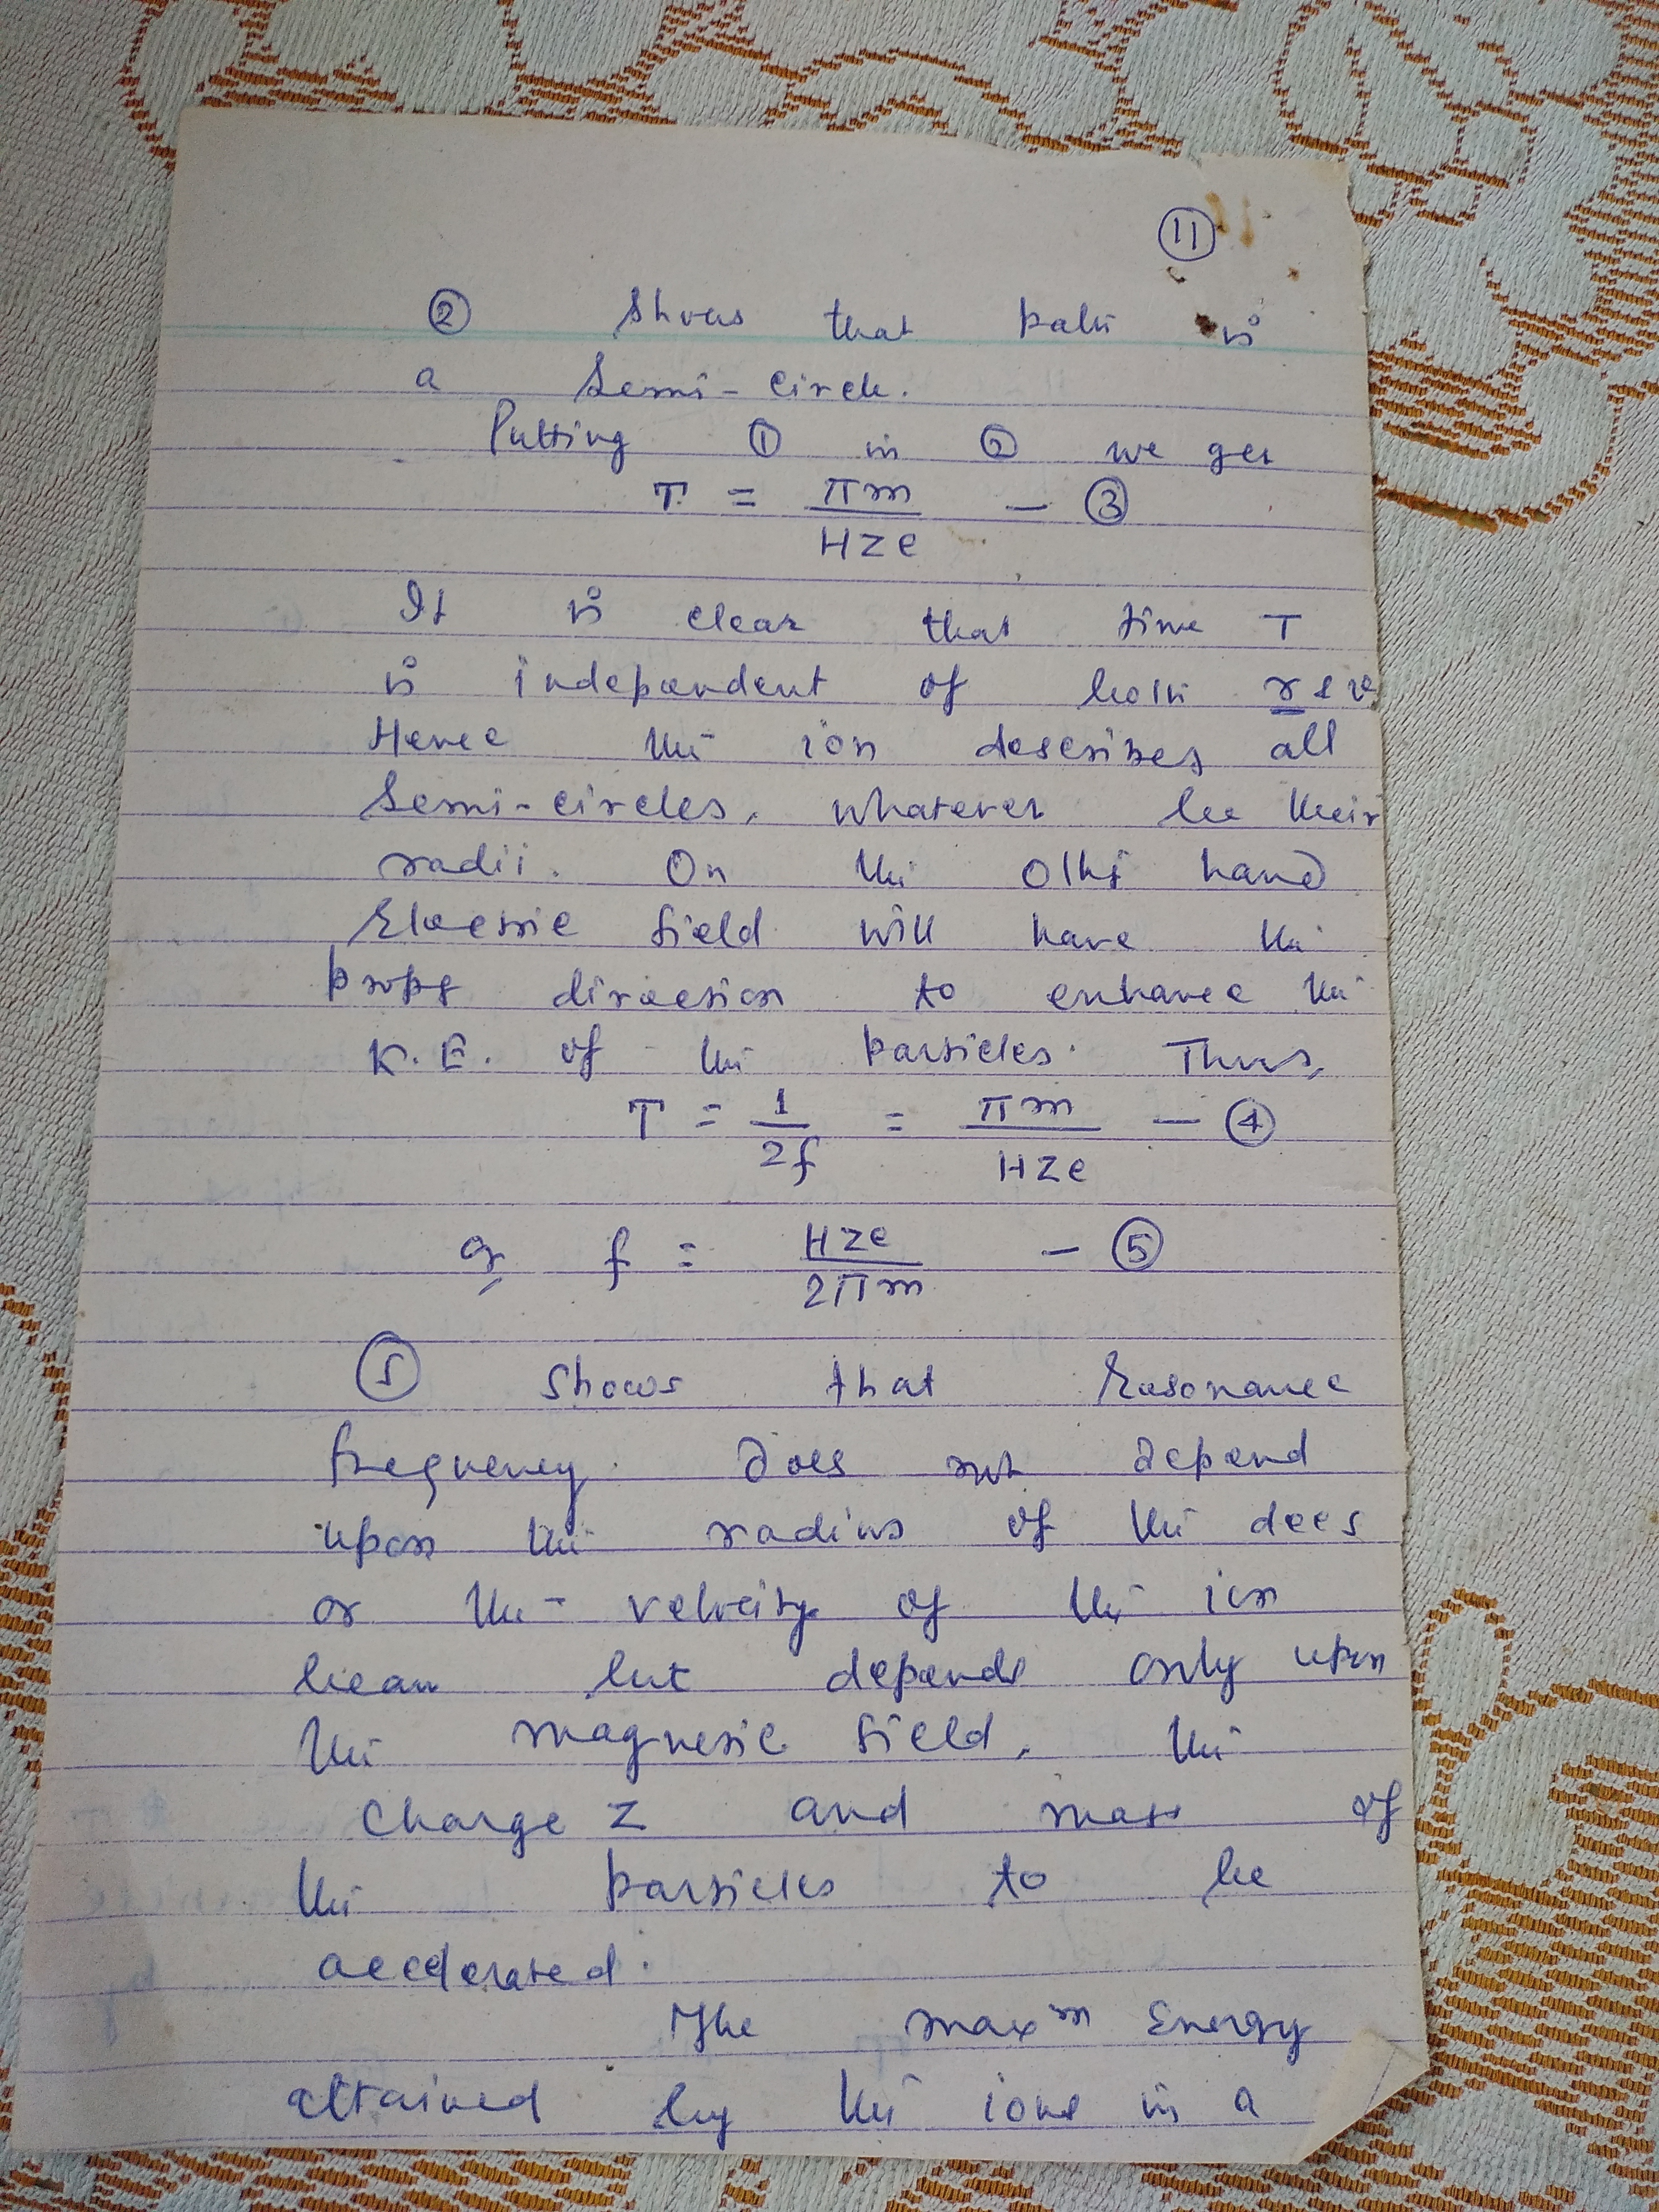 11
② Shows that path is
a Semi-circle.
Putting ① in ② we get
T = πm / HZe — ③
It is clear that time T
is independent of both r & v
Hence the ion describes all
Semi-circles, whatever be their
radii. On the other hand
Electric field will have the
proper direction to enhance the
K.E. of the particles. Thus,
T = 1 / 2f = πm / HZe — ④
or, f = HZe / 2πm — ⑤
⑤ shows that Resonance
frequency does not depend
upon the radius of the dees
or the velocity of the ion
beam but depends only upon
the magnetic field, the
charge Z and mass of
the particles to be
accelerated.
The maxᵐ Energy
attained by the ions in a